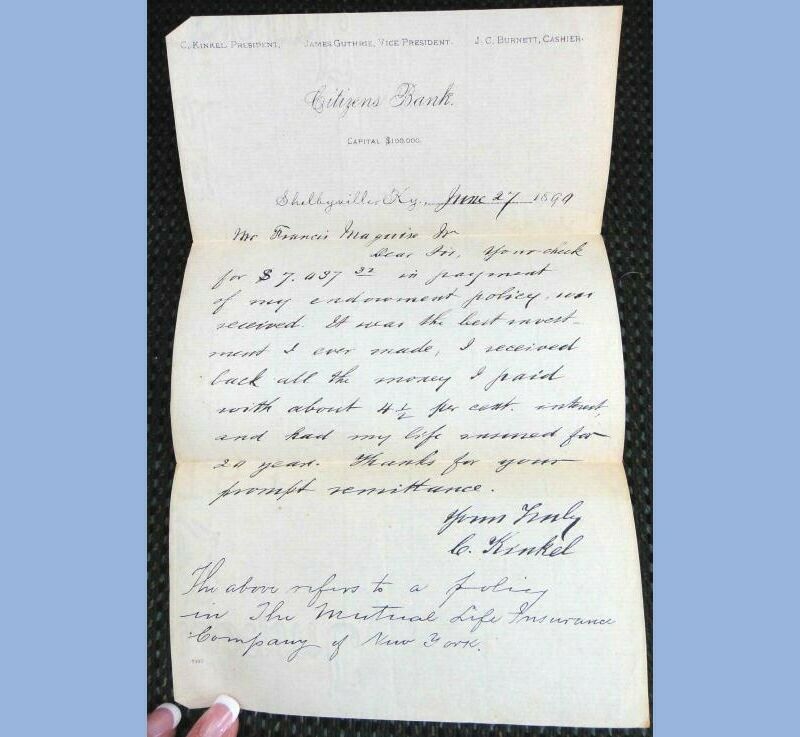 C. Kinkel, President. James Guthrie, Vice President. J. C. Burnett, Cashier.
Citizens Bank.
Capital $100,000.
Shelbyville, Ky., June 27 1890
Mr Francis Maguire Jr
Dear Sir, Your check
for $ 7.037 32 in payment
of my endowment policy, was
received. It was the best invest-
ment I ever made, I received
back all the money I paid
with about 4 1/2 per cent. interest,
and had my life insured for
20 years. Thanks for your
prompt remittance.
Yours Truly
C. Kinkel
The above refers to a policy
in The Mutual Life Insurance
Company of New York.